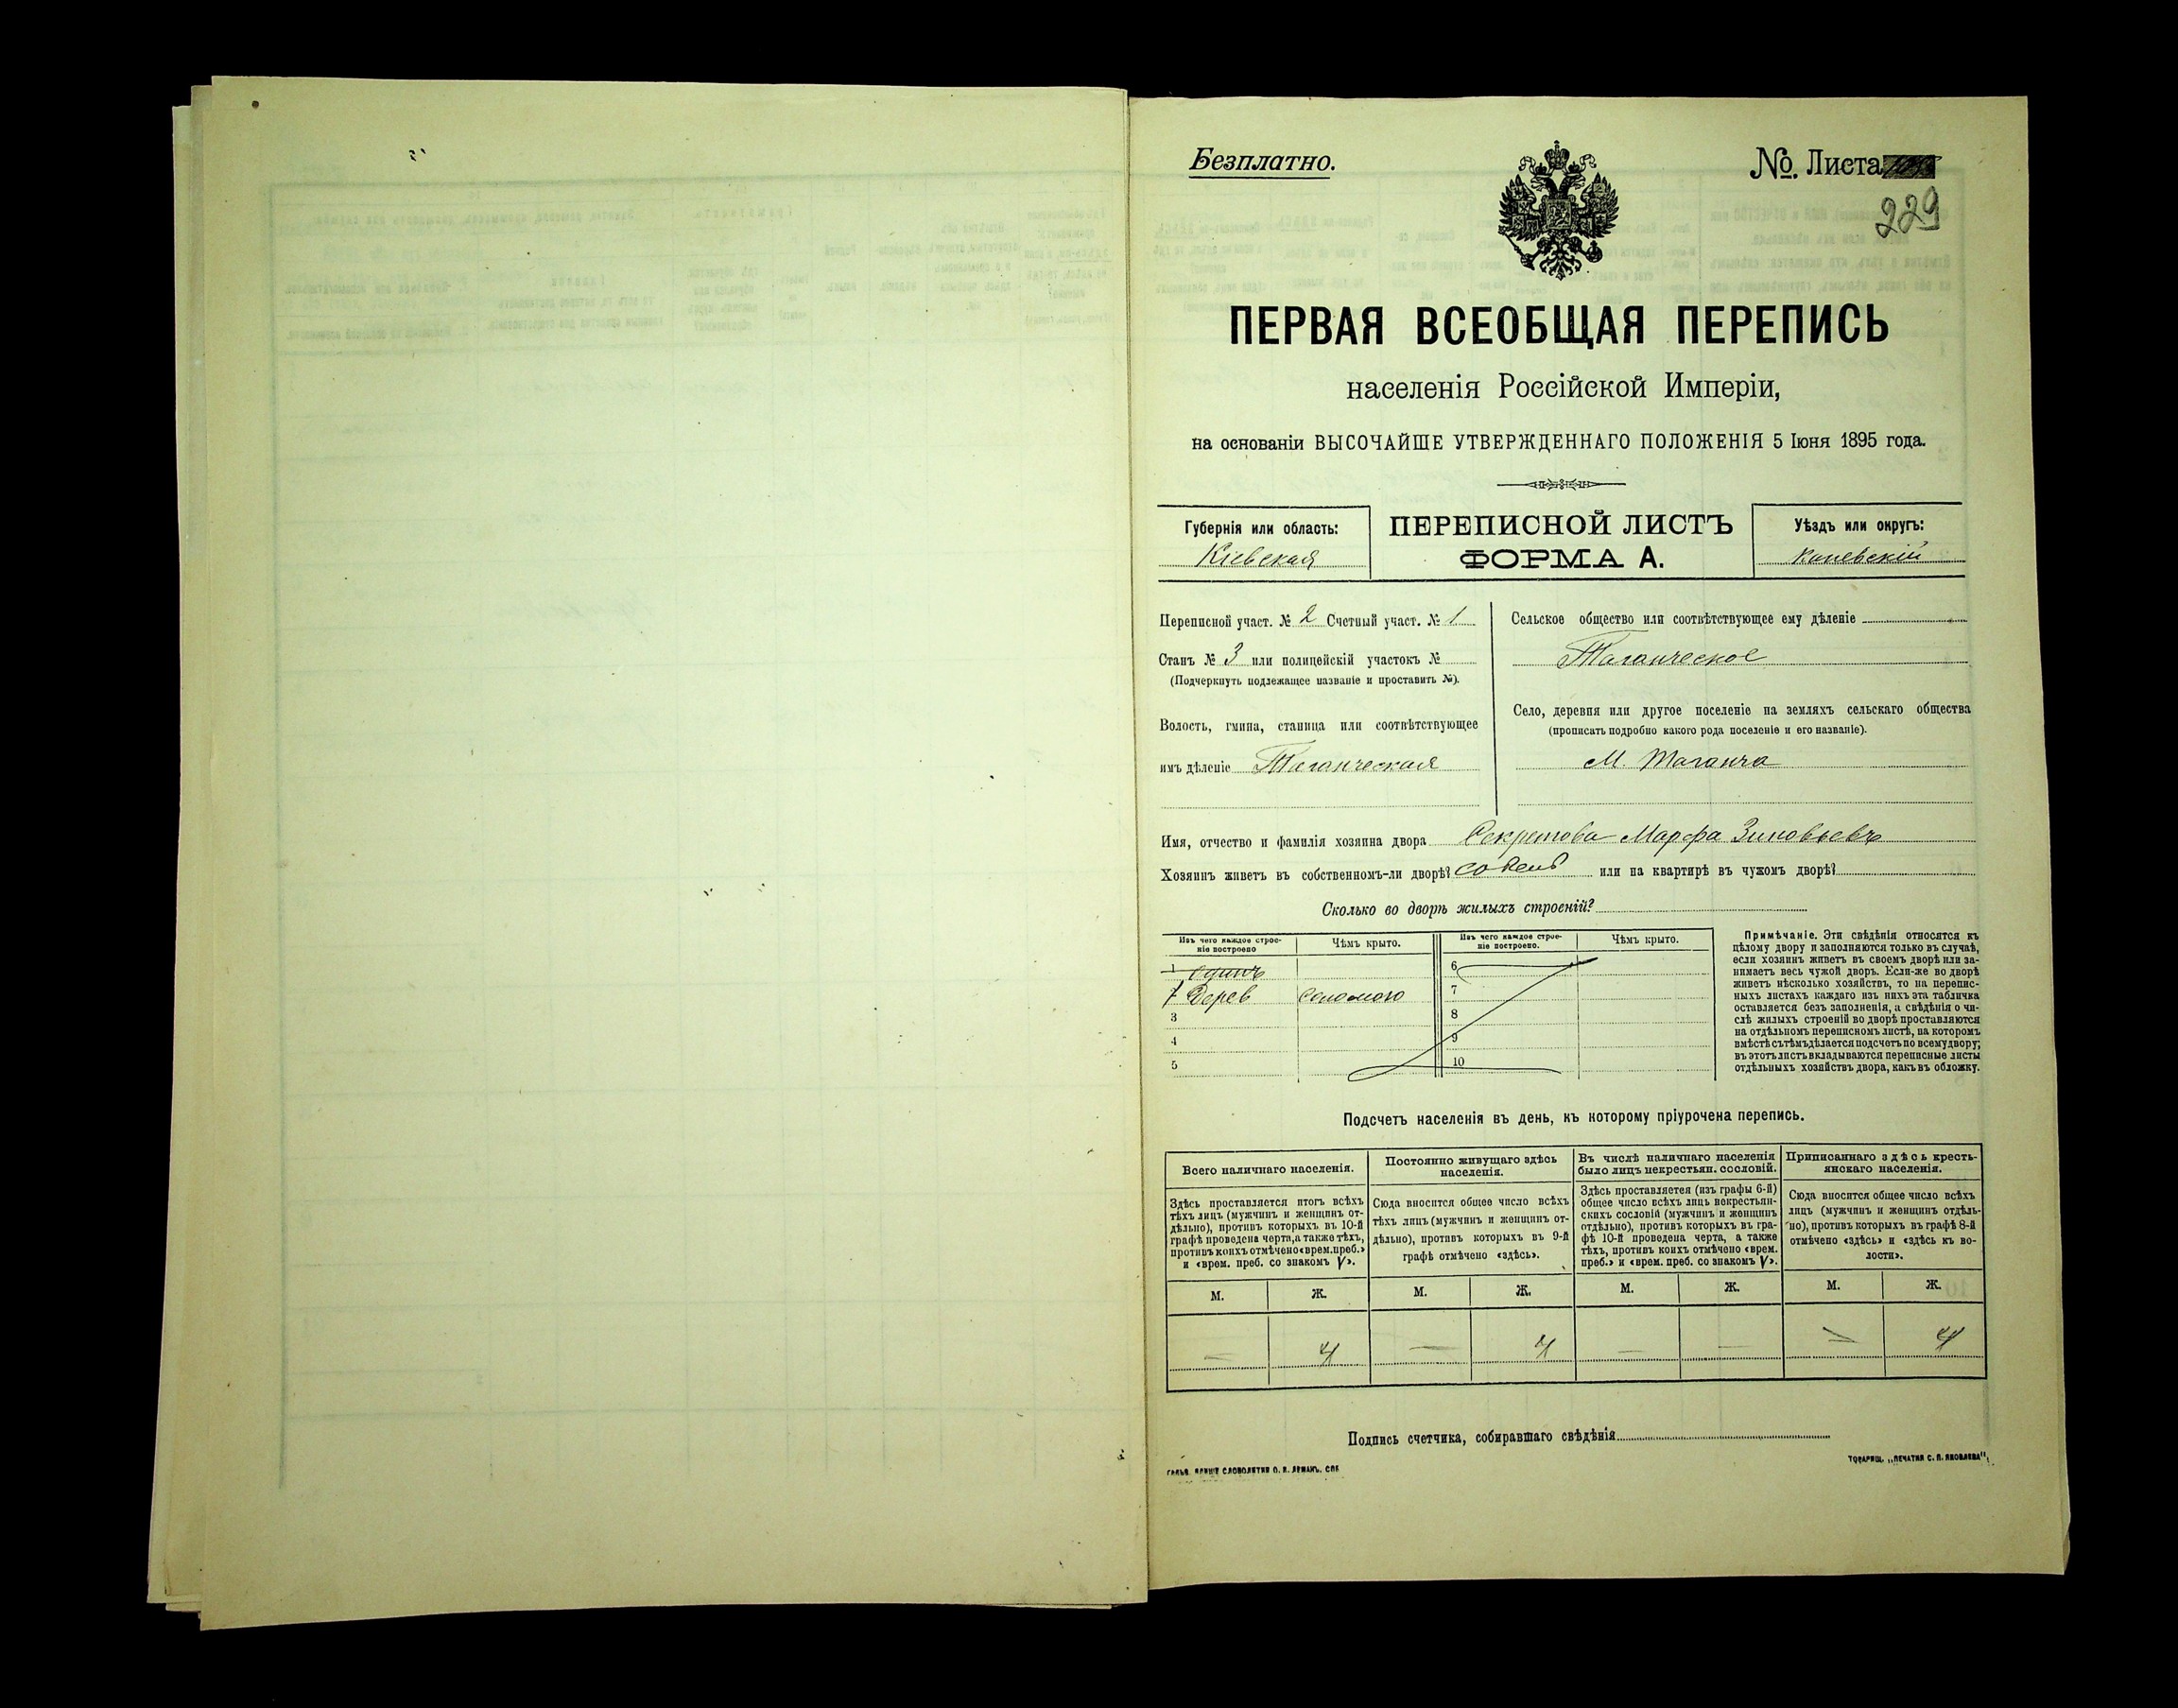 Безплатно.
№. Листа
229
ПЕРВАЯ ВСЕОБЩАЯ ПЕРЕПИСЬ
населенія Россійской Имперіи,
на основаніи ВЫСОЧАЙШЕ УТВЕРЖДЕННАГО ПОЛОЖЕНІЯ 5 Іюня 1895 года.
Губернія или область:
Кіевская
ПЕРЕПИСНОЙ ЛИСТЪ
ФОРМА А.
Уѣздъ или округъ:
Каневскій
Переписной участ. № 2 Счетный участ. № 1
Станъ № 3 или полицейскій участокъ №
(Подчеркнуть подлежащее названіе и проставить №).
Волость, гмина, станица или соотвѣтствующее
имъ дѣленіе Таганческая
Сельское общество или соотвѣтствующее ему дѣленіе
Таганческое
Село, деревня или другое поселеніе на земляхъ сельскаго общества
(прописать подробно какого рода поселеніе и его названіе).
М. Таганча
Имя, отчество и фамилія хозяина двора Секретова Марфа Зиновьевъ
Хозяинъ живетъ въ собственномъ-ли дворѣ? или на квартирѣ въ чужомъ дворѣ?
Сколько во дворѣ жилыхъ строеній?
Изъ чего каждое строе-
ніе построено
Чѣмъ крыто.
Изъ чего каждое строе-
ніе построено.
Чѣмъ крыто.
1 одинъ
1 Дерев Соломою
3
4
5
6
7
8
9
10
Примѣчаніе. Эти свѣдѣнія относятся къ
цѣлому двору и заполняются только въ случаѣ,
если хозяинъ живетъ въ своемъ дворѣ или за-
нимаетъ весь чужой дворъ. Если-же во дворѣ
живетъ нѣсколько хозяйствъ, то на перепис-
ныхъ листахъ каждаго изъ нихъ эта табличка
оставляется безъ заполненія, а свѣдѣнія о чи-
слѣ жилыхъ строеній во дворѣ проставляются
на отдѣльномъ переписномъ листѣ, на которомъ
вмѣстѣ съ тѣмъ дѣлается подсчетъ по всему двору;
въ этотъ листъ вкладываются переписные листы
отдѣльныхъ хозяйствъ двора, какъ въ обложку.
Подсчетъ населенія въ день, къ которому пріурочена перепись.
Всего наличнаго населенія.
Здѣсь проставляется итогъ всѣхъ
тѣхъ лицъ (мужчинъ и женщинъ от-
дѣльно), противъ которыхъ въ 10-й
графѣ проведена черта, а также тѣхъ,
противъ коихъ отмѣчено «врем. преб.»
и «врем. преб. со знакомъ V».
Постоянно живущаго здѣсь
населенія.
Сюда вносится общее число всѣхъ
тѣхъ лицъ (мужчинъ и женщинъ от-
дѣльно), противъ которыхъ въ 9-й
графѣ отмѣчено «здѣсь».
Въ числѣ наличнаго населенія
было лицъ некрестьян. сословій.
Здѣсь проставляется (изъ графы 6-й)
общее число всѣхъ лицъ некрестьян-
скихъ сословій (мужчинъ и женщинъ
отдѣльно), противъ которыхъ въ гра-
фѣ 10-й проведена черта, а также
тѣхъ, противъ коихъ отмѣчено «врем.
преб.» и «врем. преб. со знакомъ V».
Приписаннаго здѣсь кресть-
янскаго населенія.
Сюда вносится общее число всѣхъ
лицъ (мужчинъ и женщинъ отдѣль-
но), противъ которыхъ въ графѣ 8-й
отмѣчено «здѣсь» и «здѣсь къ во-
лости».
М. Ж. М. Ж. М. Ж. М. Ж.
— 4 — 4 — — — 4
Подпись счетчика, собиравшаго свѣдѣнія
СЛОВОЛИТНИ О. И. ЛЕМАНЪ. СПБ
ТОВАРИЩ. „ПЕЧАТНЯ С. П. ЯКОВЛЕВА“